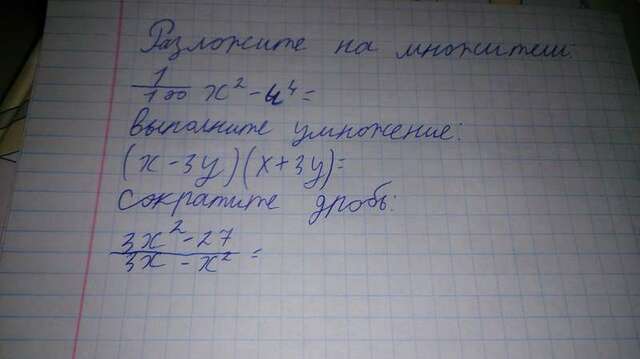 Разложите на множители:
1/100 x² - y⁴ =
выполните умножение:
(x - 3y)(x + 3y) =
сократите дробь:
3x² - 27 / 3x - x² =